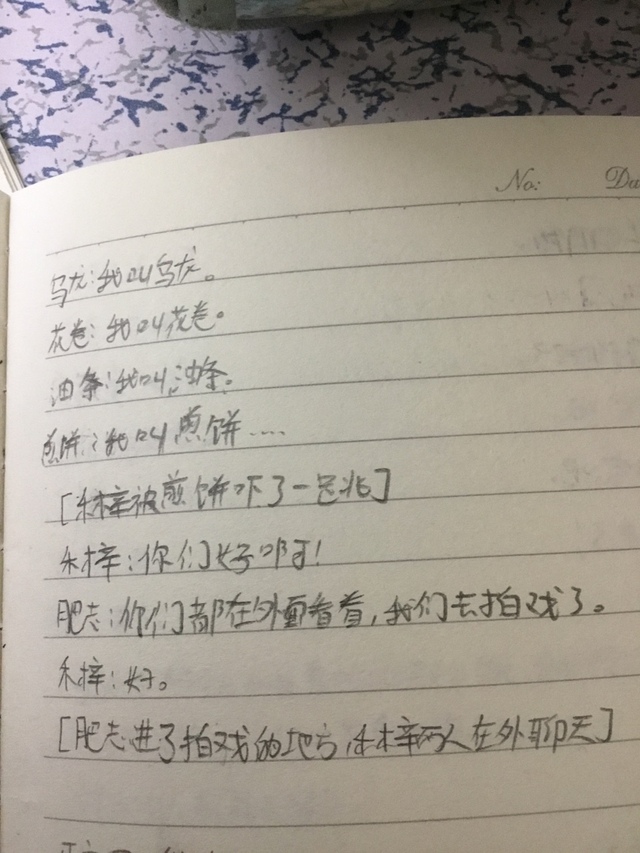 No: Da
乌龙：我叫乌龙。
花卷：我叫花卷。
油条：我叫油条。
煎饼：我叫煎饼……
[禾梓被煎饼吓了一跳]
禾梓：你们好啊！
肥志：你们都在外面看着，我们去拍戏了。
禾梓：好。
[肥志进了拍戏的地方，禾梓两人在外聊天]